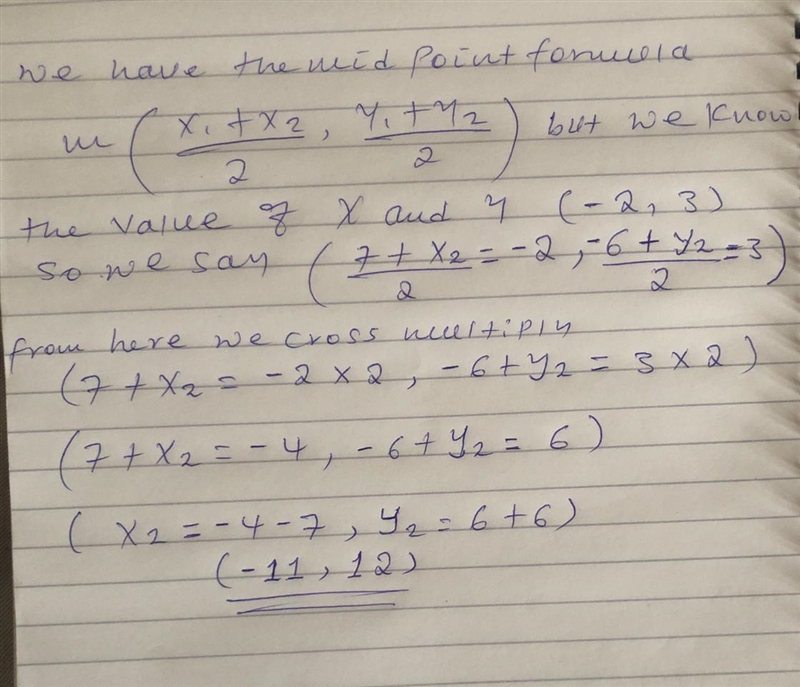 we have the mid point formula
m ( x₁ + x₂ / 2 , y₁ + y₂ / 2 ) but we know
the value of x and y (-2, 3)
so we say ( 7 + x₂ / 2 = -2 , -6 + y₂ / 2 = 3 )
from here we cross multiply
(7 + x₂ = -2 x 2 , -6 + y₂ = 3 x 2 )
(7 + x₂ = -4 , -6 + y₂ = 6 )
( x₂ = -4 - 7 , y₂ = 6 + 6 )
(-11 , 12 )